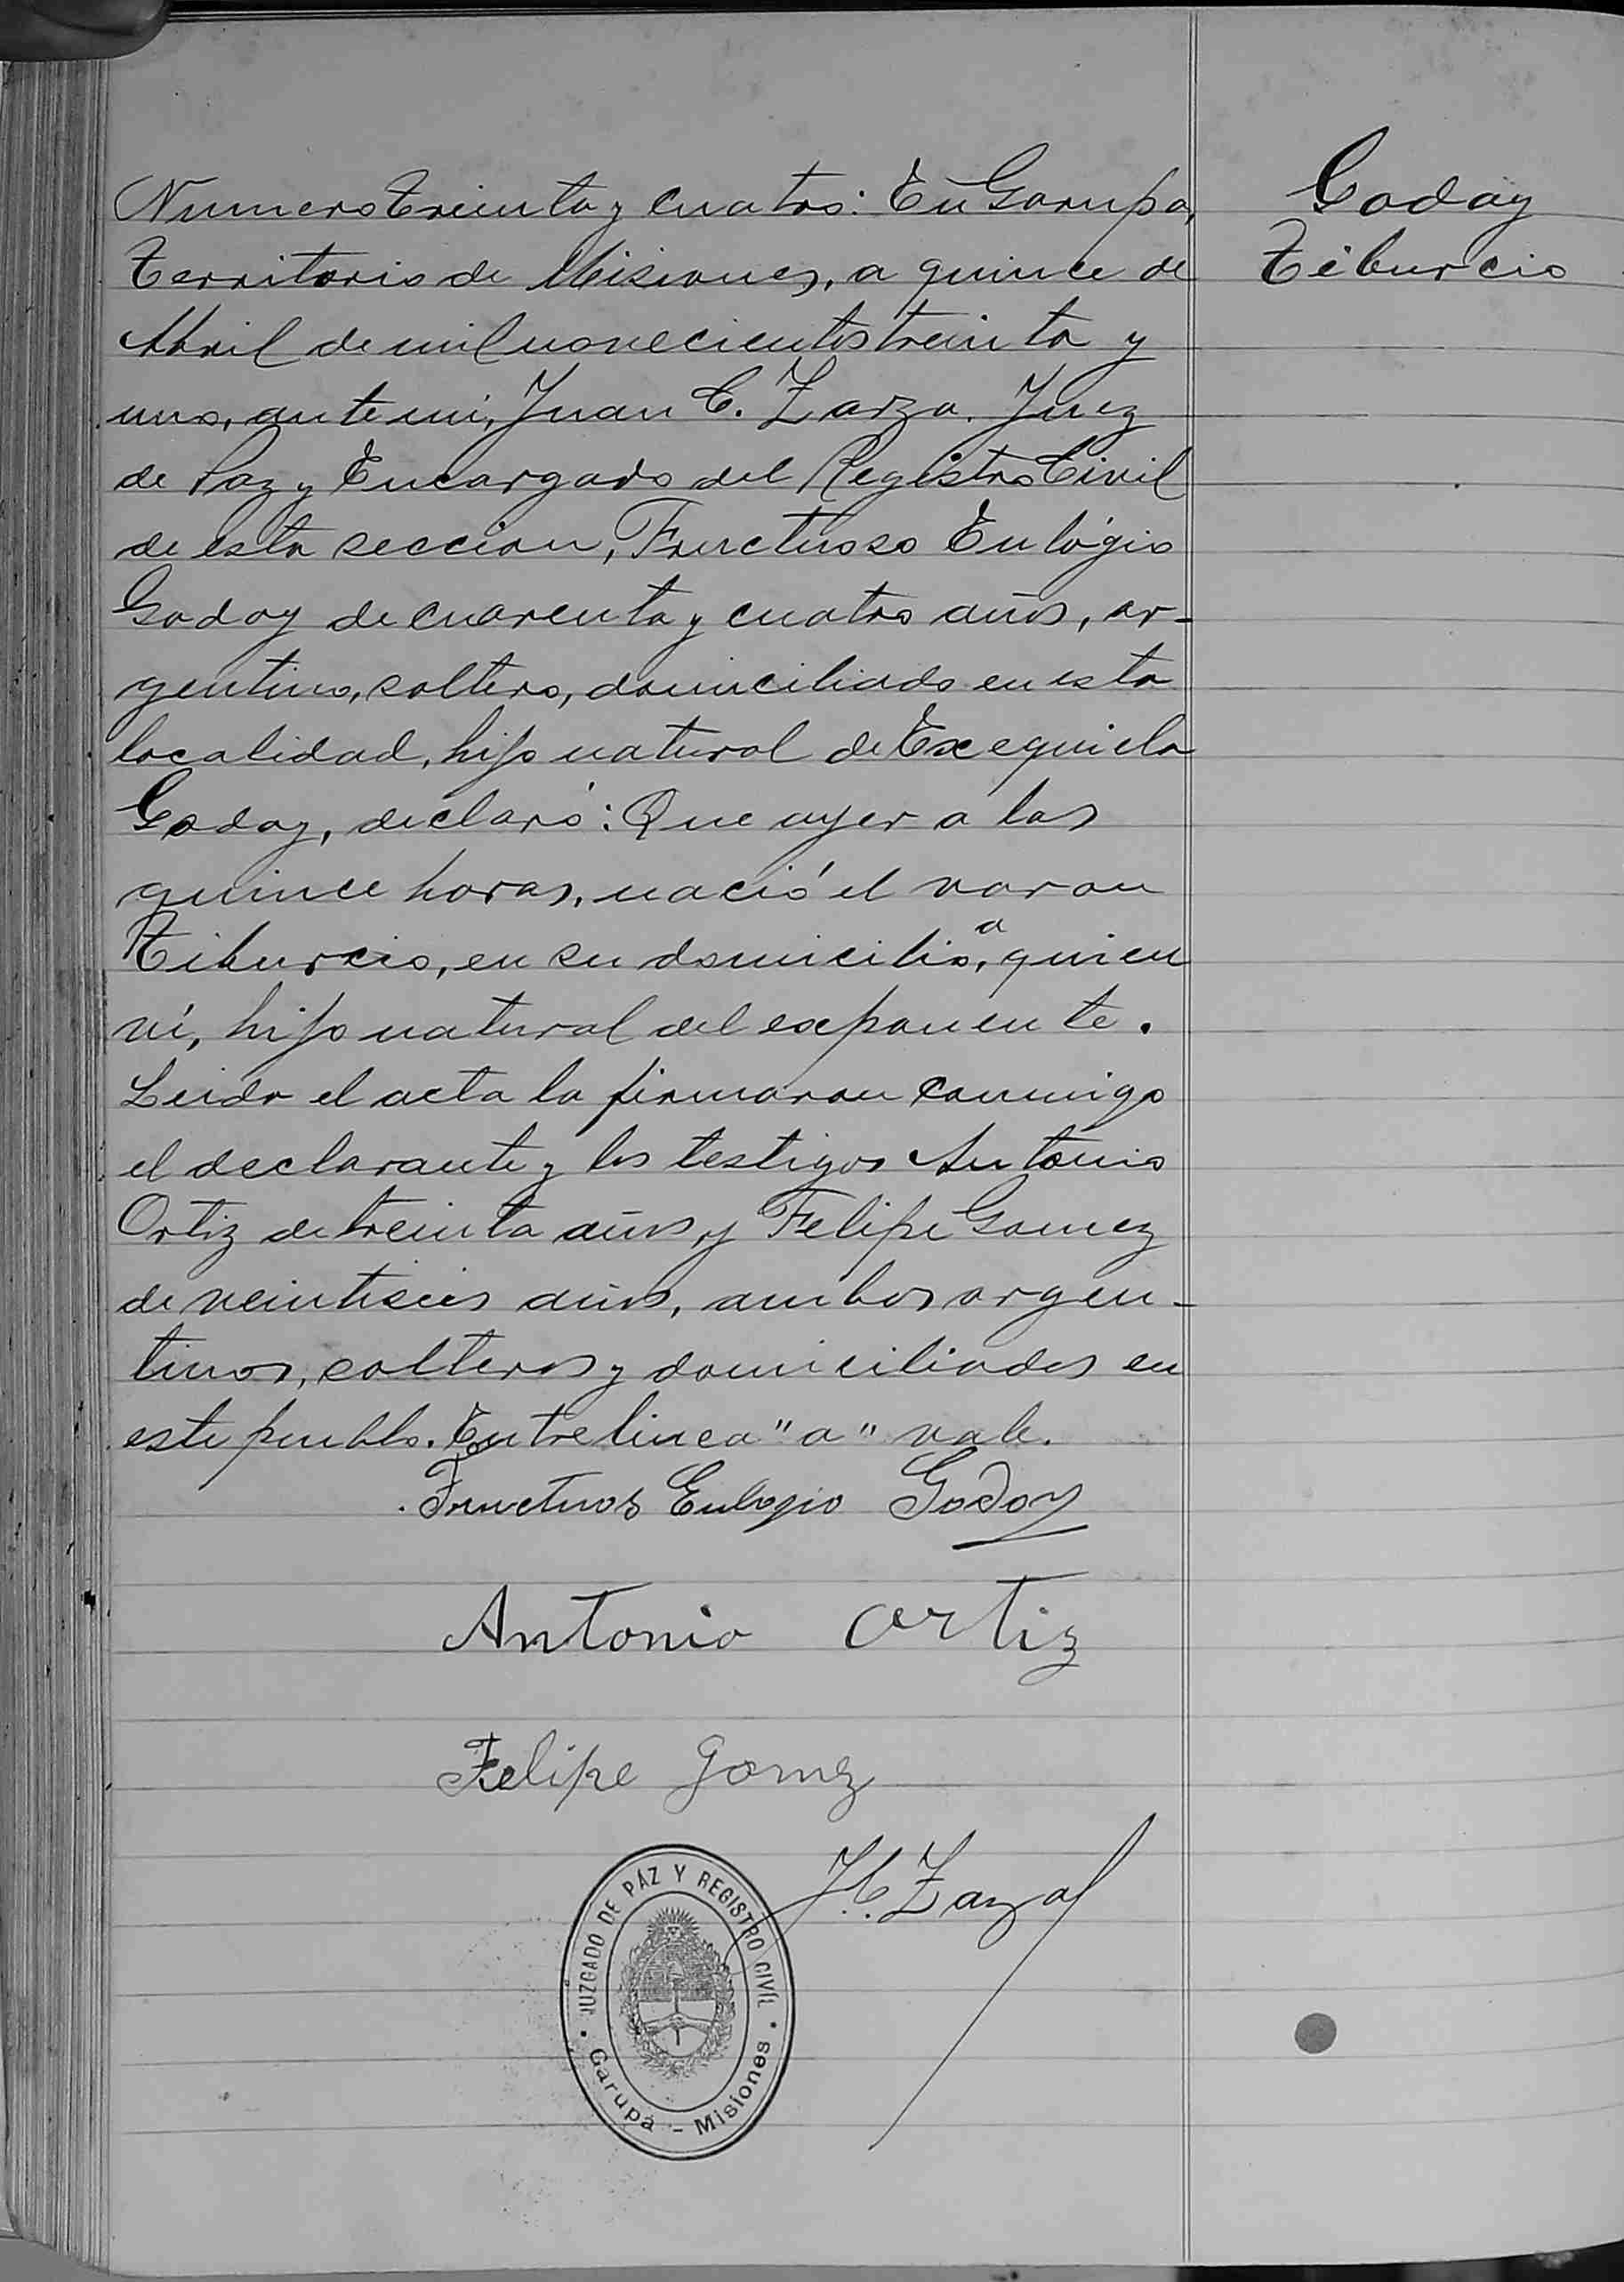 Numero treinta y cuatro: En Garupa,
Territorio de Misiones, a quince de
Abril de mil novecientos treinta y
uno, ante mi, Juan C. Zarza. Juez
de Paz y Encargado del Registro Civil
de esta seccion, Fructuoso Eulógio
Godoy de cuarenta y cuatro años, ar-
gentino, soltero, domiciliado en esta
localidad, hijo natural de Exequiela
Godoy, declaró: Que ayer a las
quince horas, nació el varon
Tiburcio, en su domicilio, a quien
ví, hijo natural del exponente.
Leida el acta la firmaron conmigo
el declarante y los testigos Antonio
Ortiz de treinta años, y Felipe Gomez
de veintiseis años, ambos argen-
tinos, solteros y domiciliados en
este pueblo. Entrelinea "a" vale.
Fructuoso Eulogio Godoy
Antonio Ortiz
Felipe Gomez
J. C. Zarza
JUZGADO DE PAZ Y REGISTRO CIVIL
Garupá - Misiones
Godoy
Tiburcio